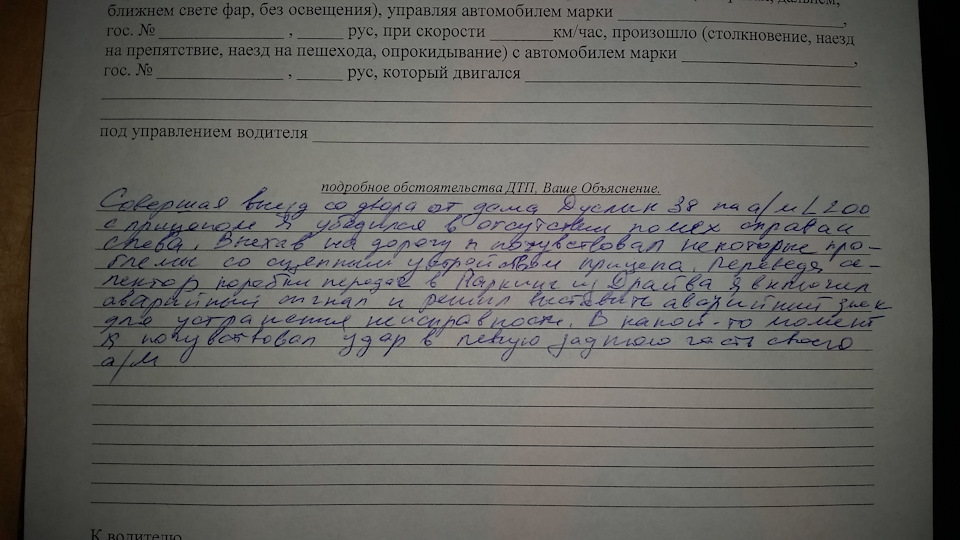 ближнем свете фар, без освещения), управляя автомобилем марки ,
гос. № , рус, при скорости км/час, произошло (столкновение, наезд
на препятствие, наезд на пешехода, опрокидывание) с автомобилем марки ,
гос. № , рус, который двигался
под управлением водителя
подробное обстоятельства ДТП, Ваше Объяснение.
Совершая выезд со двора от дома 38 на а/м L200
с прицепом я убедился в отсутствии помех справа и
слева. Выехав на дорогу я почувствовал некоторые про-
блемы со сцепным устройством прицепа. Переведя се-
лектор коробки передач в Паркинг из Драйва я включил
аварийный сигнал и решил выставить аварийный знак
для устранения неисправности. В какой-то момент
я почувствовал удар в левую заднюю часть своего
а/м
К водителю